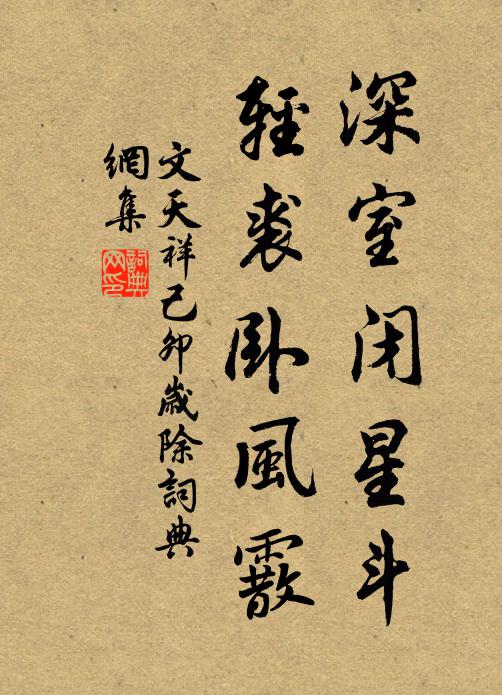 深室闭星斗
輕裘卧風霰
文天祥己卯歲除詞典
網集
詞典
网印